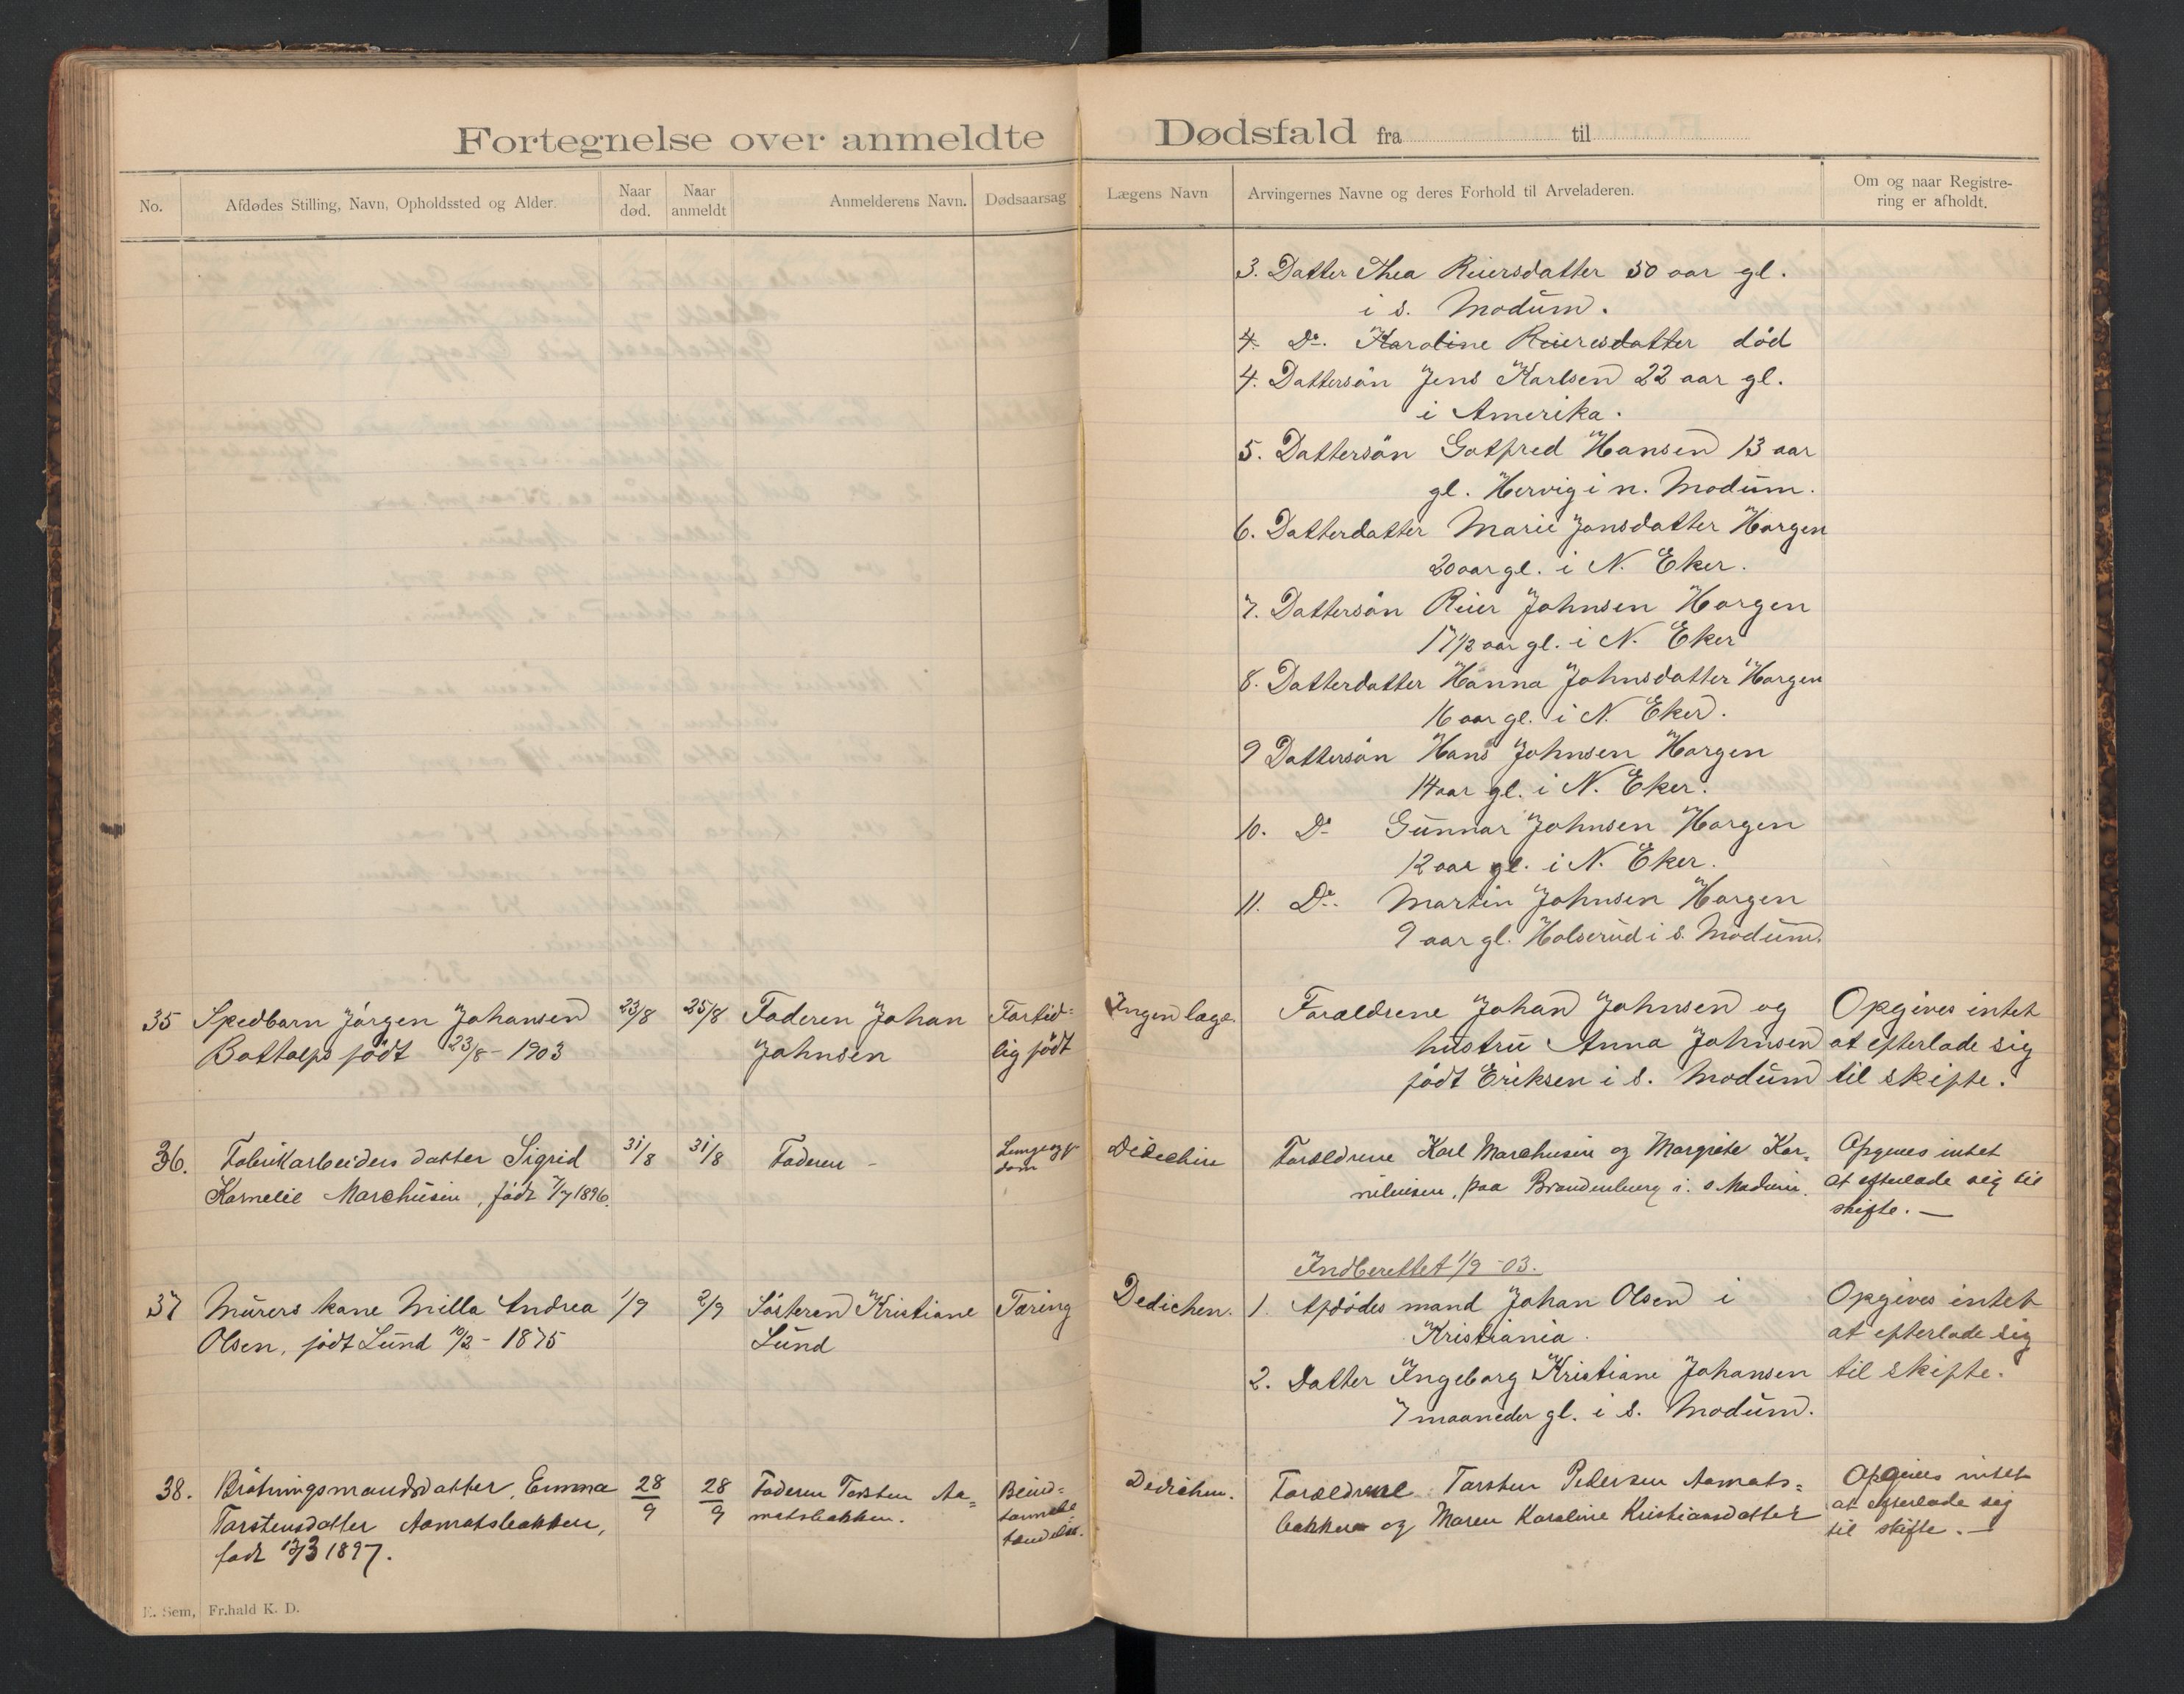 Fortegnelse over anmeldte Dødsfald fra til
No.
Afdødes Stilling, Navn, Opholdssted og Alder.
Naar død.
Naar anmeldt
Anmelderens Navn.
Dødsaarsag
Lægens Navn
Arvingernes Navne og deres Forhold til Arveladeren.
Om og naar Registre-
ring er afholdt.
3. Datter Thea Reiersdatter 50 aar gl.
i s. Modum.
4. Do. Karoline Reieresdatter død
4. Dattersøn Jens Karlsen 22 aar gl.
i Amerika.
5. Dattersøn Gotfred Hansen 13 aar
gl. Hervig i n. Modum.
6. Datterdatter Marie Jonsdatter Horgen
20 aar gl. i N. Eker.
7. Dattersøn Reier Johnsen Horgen
17 1/2 aar gl. i N. Eker
8. Datterdatter Hanna Johnsdatter Horgen
16 aar gl. i N. Eker.
9 Dattersøn Hans Johnsen Horgen
14 aar gl. i N. Eker.
10. Do Gunnar Johnsen Horgen
12 aar gl. i N. Eker.
11. Do. Martin Johnsen Horgen
9 aar gl. Holserud i s. Modum.
35 Spedbarn Jørgen Johansen 23/8 25/8 Faderen Johan Fortid- Ingen læge. Forældrene Johan Johnsen og Opgives intet
Bottolfs født 23/8 - 1903 Johnsen lig født hustru Anna Johnsen at efterlade sig
født Eriksen i s. Modum til skifte.
36. Fabrikarbeiders datter Sigrid 31/8 31/8 Faderen - Lungesyg- Dedichen Forældrene Karl Marchusen og Margrete Kor- Opgives intet
Kornelie Marchusen, født 7/7 1896. dom neliusen, paa Brandenburg i s Modum. at efterlade sig til
skifte. —
Indberettet 1/9 - 03.
37 Murers kone Milla Andrea 1/9 2/9 Søsteren Kristiane Tæring Dedichen. 1. Afdødes mand Johan Olsen i Opgives intet
Olsen, født Lund 10/2 - 1875 Lund Kristiania. at efterlade sig
2. Datter Ingeborg Kristiane Johansen til skifte.
7 maaneder gl. i s. Modum.
38. Bråtningsmandsdatter, Emma 28/9 28/9 Faderen Torsten Aa- Dedichen. Forældrene Torsten Pedersen Aamots- Opgives intet
Torstensdatter Aamotsbakken, motsbakken. bakken og Maren Karoline Kristiansdatter at efterlade sig
født 13/3 1897. til skifte. —
E. Sem, Fr.hald K. D.